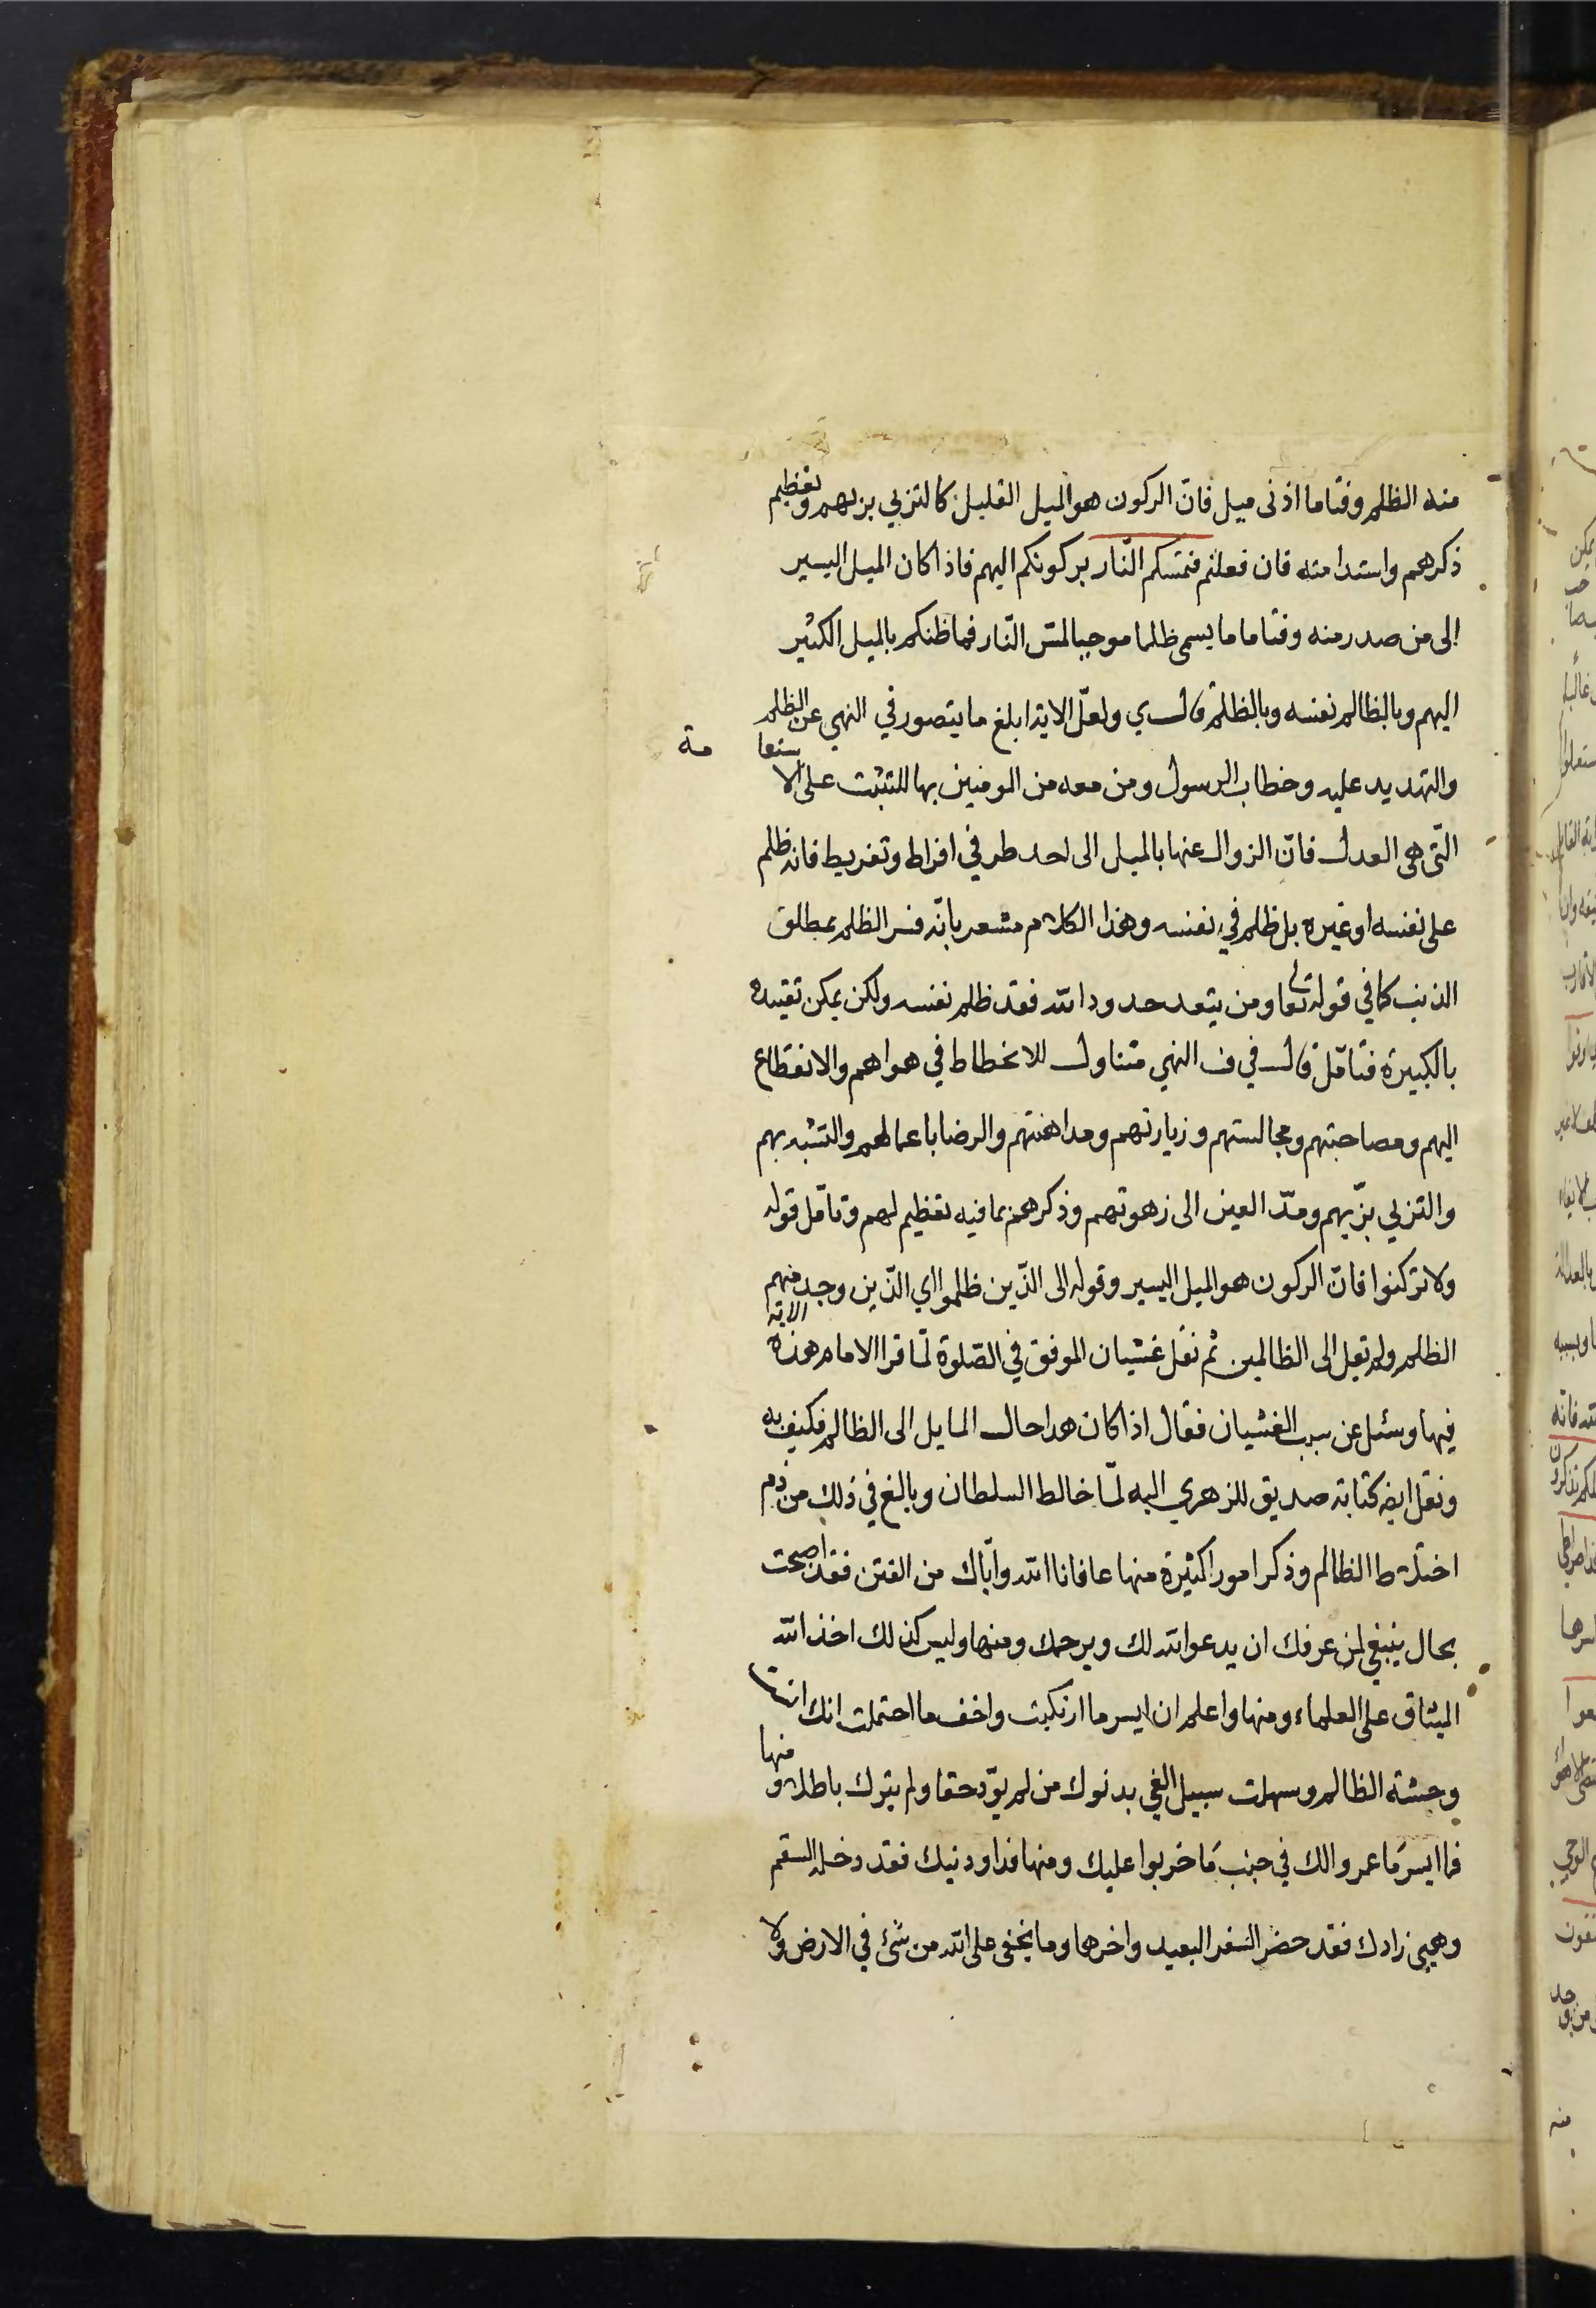 منه الظلم وقتاما ادنى ميل فانّ الركون هو الميل القليل كالتزيي بزيهم وتعظيم
ذكرهم واستدامته فان فعلتم فتمسّكم النّار بركونكم اليهم فاذا كان الميل اليسير
الى من صدر منه وقتاما ما يسمى ظلما موجبا لمسّ النّار فما ظنكم بالميل الكثير
اليهم وبالظالم نفسه وبالظلم قال ي ولعلّ الاية ابلغ ما يتصور في النهي عن الظلم
والتهديد عليه وخطاب الرسول ومن معه من المومنين بها للتثبت على الاستقامة
الّتى هى العدل فانّ الزوال عنها بالميل الى احد طرفي افراط وتفريط فانه ظلم
على نفسه او غيره بل ظلم في نفسه وهذا الكلام مشعر بانّه فسر الظلم بمطلق
الذنب كما في قوله تعا ومن يتعد حدود الله فقد ظلم نفسه ولكن يمكن تقييده
بالكبيرة فتامّل قال في ف النهي متناول للانحطاط في هواهم والانقطاع
اليهم ومصاحبتهم ومجالستهم وزيارتهم ومداهنتهم والرضا باعمالهم والتشبه بهم
والتزيي بزّيهم ومدّ العين الى زهوتهم وذكرهم بما فيه تعظيم لهم وتامّل قوله
ولا تركنوا فانّ الركون هو الميل اليسير وقوله الى الذّين ظلموا اي الذّين وجد منهم
الظلم ولم تقل الى الظالمين ثم نقل غشيان الموفق في الصّلوة لمّا قرا الامام هذه الاية
فيها وسئل عن سبب الغشيان فقال اذا كان هدا حال المايل الى الظالم فكيف به
ونقل ايضه كتابة صديق للزهري اليه لمّا خالط السلطان وبالغ في ذلك من ذم
اختلاط الظالم وذكر امورا كثيرة منها عافانا الله وايّاك من الفتن فقد اصبحت
بحال ينبغي لمن عرفك ان يدعو الله لك ويرحمك ومنها وليس كذلك اخذ الله
الميثاق على العلماء ومنها واعلم ان ايسر ما ارتكبت واخف ما احتملت انك انست
وحشة الظالم وسهلت سبيل الغي بدنوك من لم يوّد حقا ولم يترك باطلا ومنها
فما ايسر ما عمروا لك في جنب ما خربوا عليك ومنها فداو دينك فقد دخله السقم
وهيئ زادك فقد حضر السفر البعيد واخرها وما يخفى على الله من شئ في الارض ولا